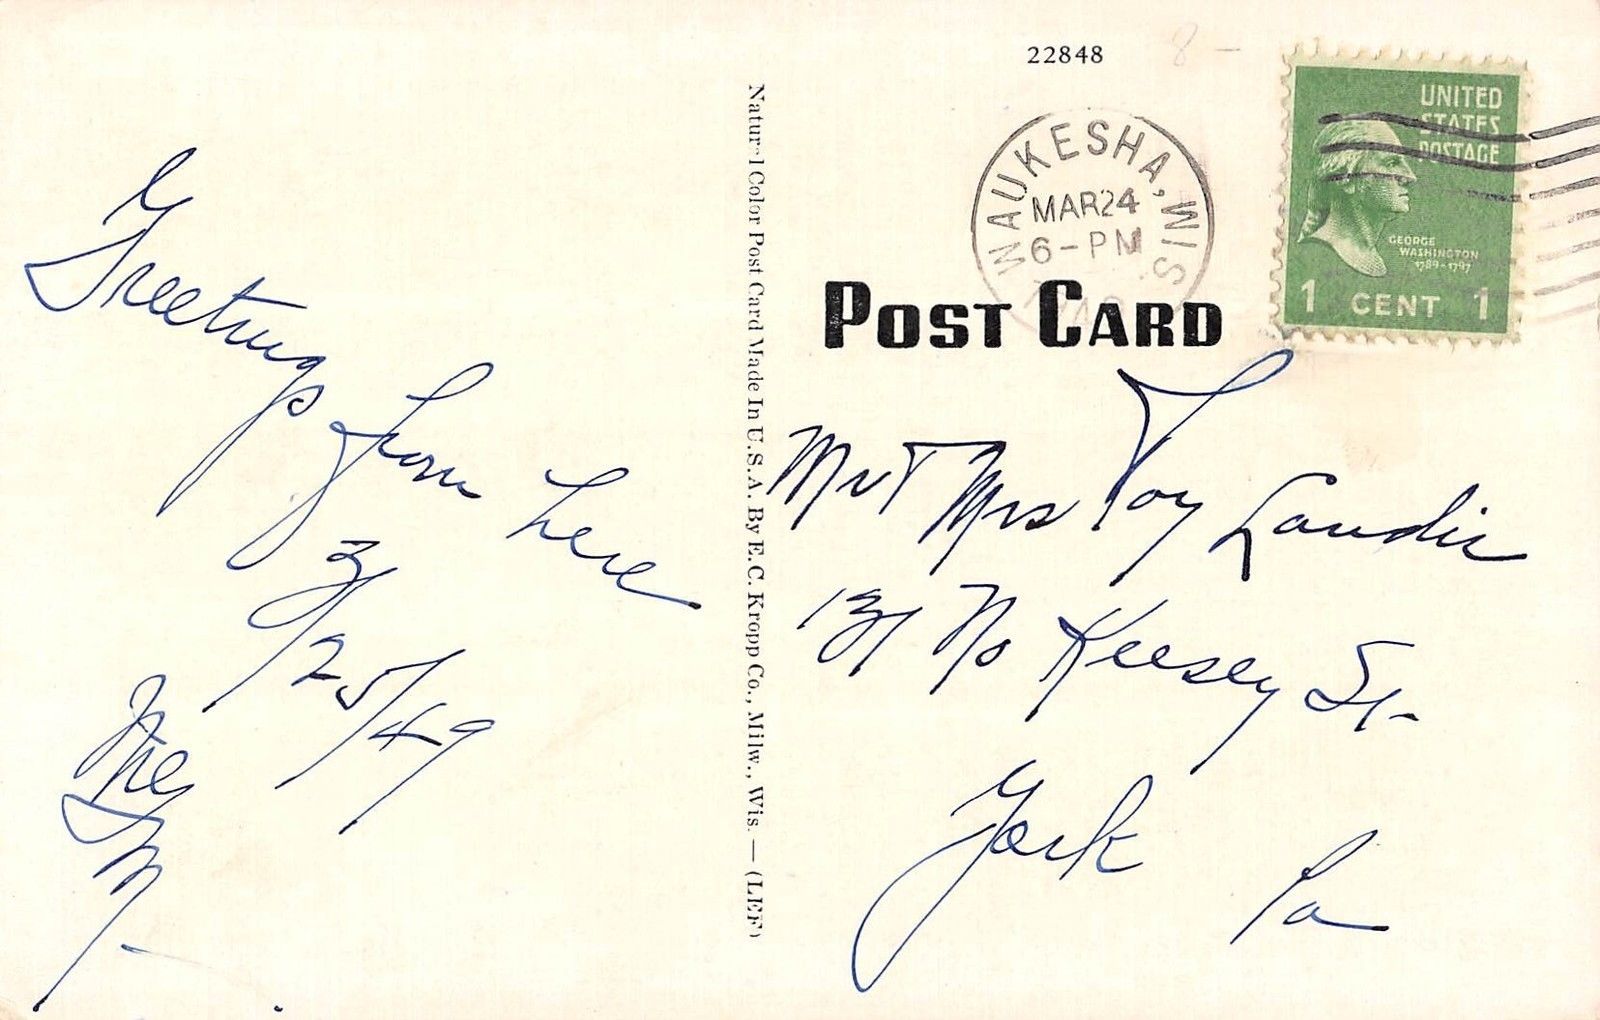 22848
8 -
WAUKESHA, WIS
MAR 24
6-PM
UNITED
STATES
POSTAGE
GEORGE
WASHINGTON
1789-1797
1 CENT 1
POST CARD
Natural Color Post Card Made In U.S.A. By E.C. Kropp Co., Milw., Wis. — (LEF)
Greetings
from here
3/25/49
Mr + Mrs Roy Landis
131 No Keesey St-
York
Pa